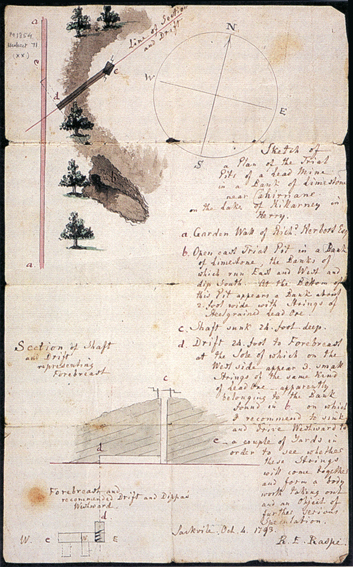 a
M 1854
Herbert 71
(xx)
a
Line of Section
and Drift
c
N
W
E
S
a
Sketch of
a Plan of the Trial
Pits of a Lead Mine
in a Bank of Limestone
near Cahirnane
on the Lake of Killarney in
Kerry.
a. Garden Wall of Richd. Herbert Esq
b. Open cast Trial Pit in a Bank
of Limestone, the Banks of
which run East and West and
dip South. At the Bottom of
this Pit appears a Bank about
2. foot wide with Strings of
Steelgrained Lead Ore.
c. Shaft sunk 24. foot deep.
d. Drift 24. foot to Forebreast
at the Sole of which on the
West side appear 3. small
Strings of the same Kind
of Lead Ore apparently
belonging to the Bank
found in b. on which
I recommend to sink
and Drive Westward to
e a couple of Yards in
order to see whether
these Strings
will come together
and form a body
worth taking out
and an Object of
further serious
Speculation.
Section of Shaft
and Drift
representing
Forebreast
c
d
Forebreast and
recommended Drift and Dippa
Westward.
d
W. e
E
Jackville Oct. 4. 1793.
R. E. Raspe.